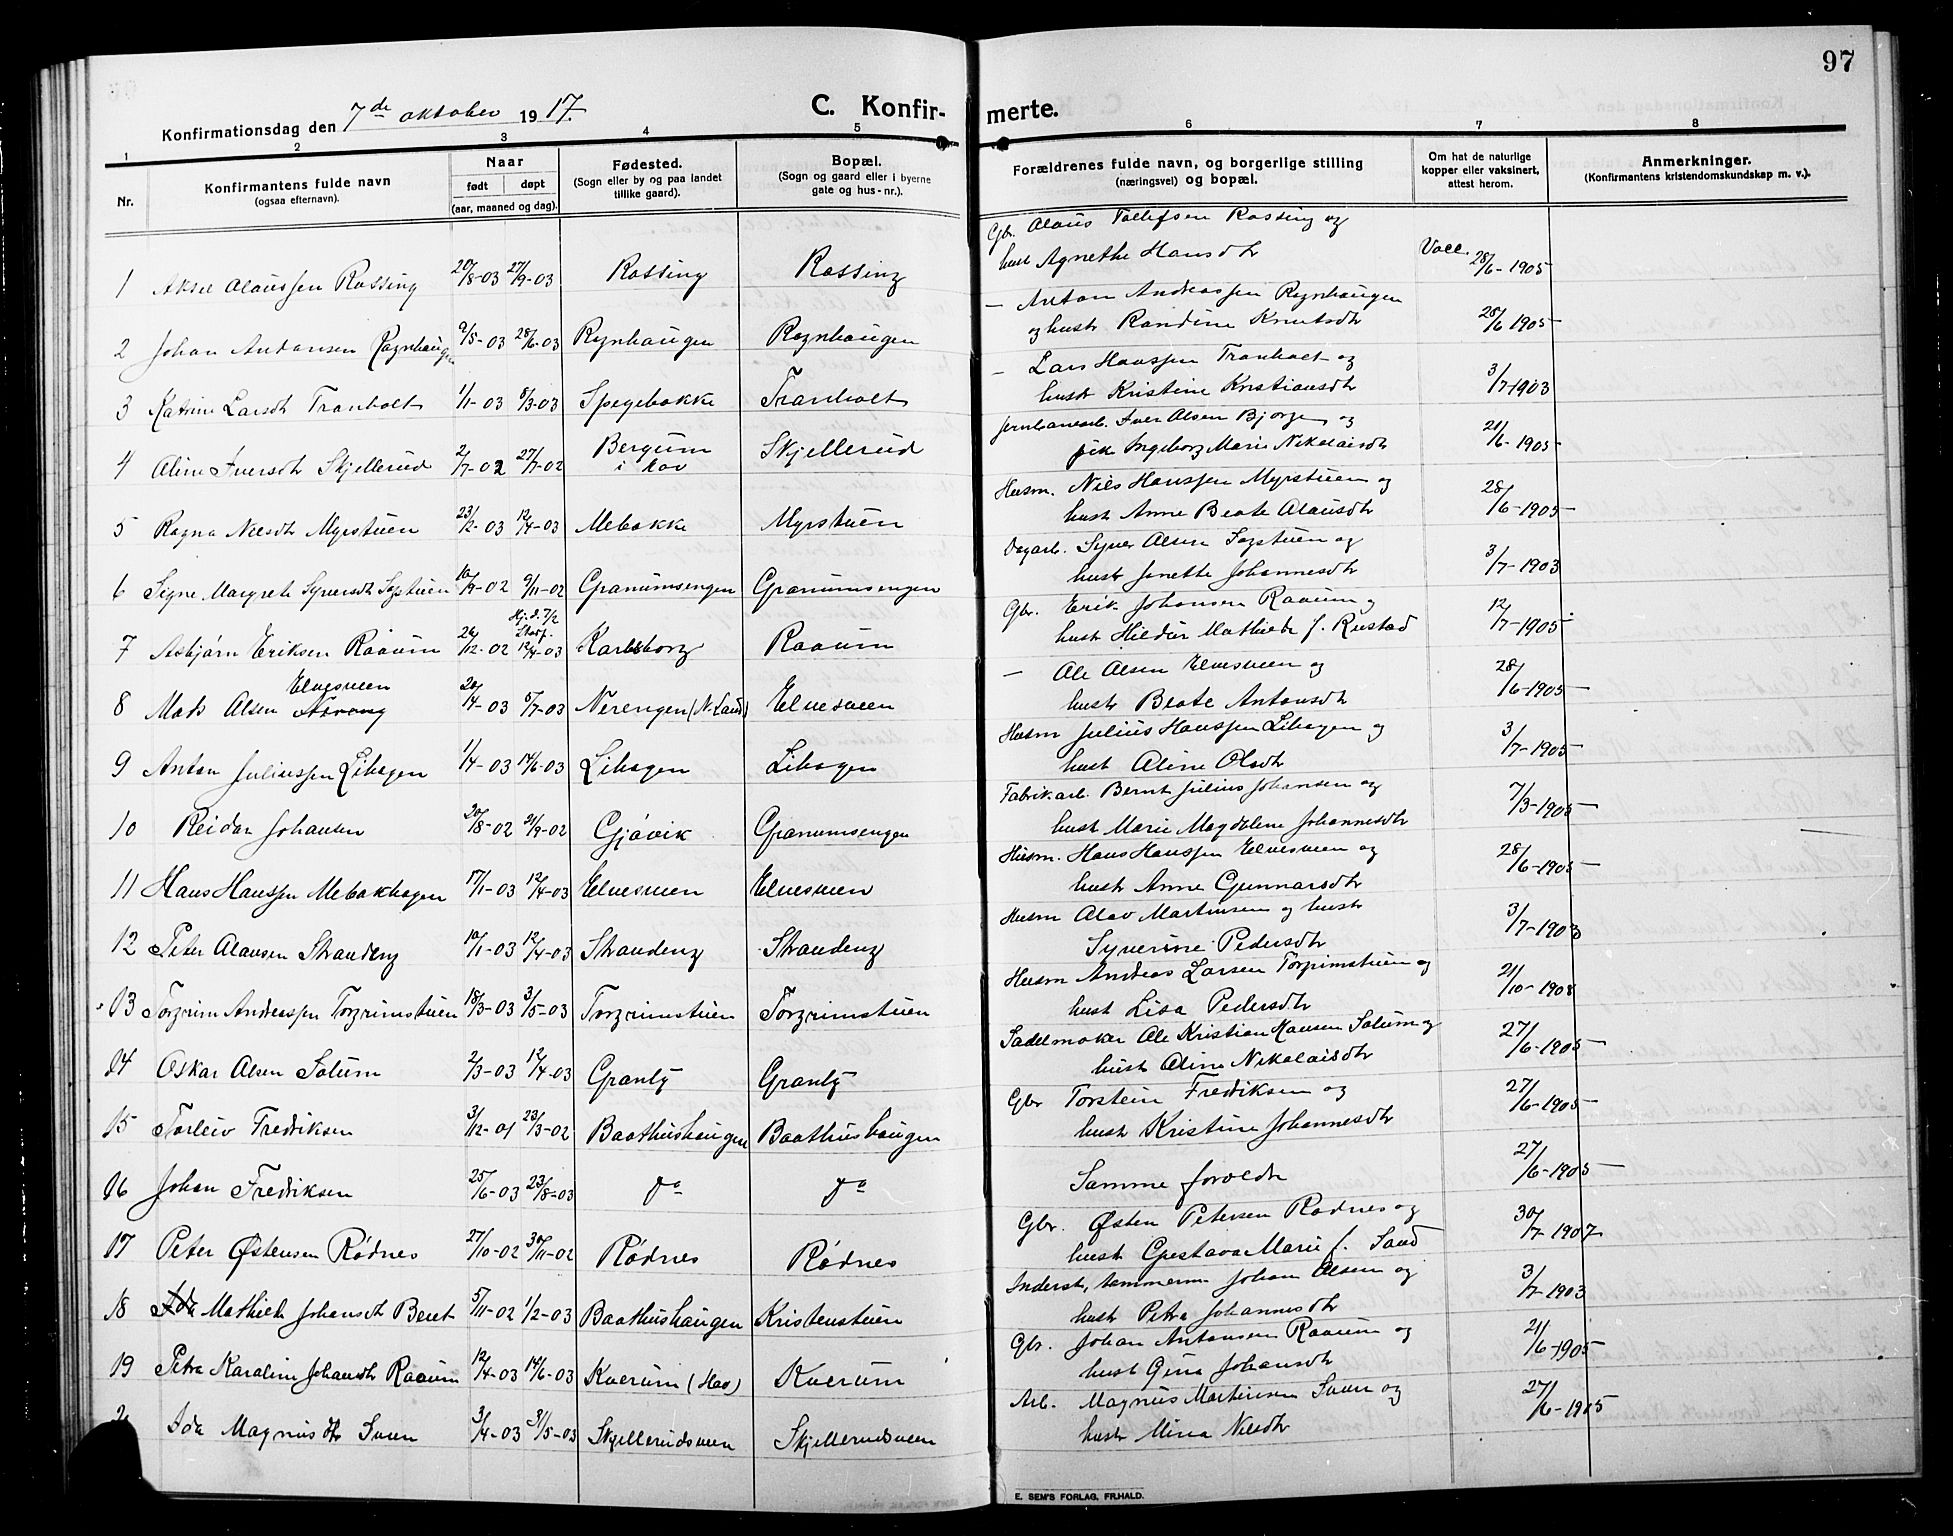 97
Konfirmationsdag den 7de oktober 1917.
C. Konfir-merte.
1 2 3 4 5 6 7 8
Nr.
Konfirmantens fulde navn
(ogsaa efternavn).
Naar
født døpt
(aar, maaned og dag).
Fødested.
(Sogn eller by og paa landet
tillike gaard).
Bopæl.
(Sogn og gaard eller i byerne
gate og hus-nr.).
Forældrenes fulde navn, og borgerlige stilling
(næringsvei) og bopæl.
Om hat de naturlige
kopper eller vaksinert,
attest herom.
Anmerkninger.
(Konfirmantens kristendomskundskap m. v.).
Gbr. Olaus Tollefsen Rossing og
1 Aksel Olaussen Rossing 20/8-03 27/9-03 Rossing Rossing hust Agnethe Hansdtr Vacc. 28/6-1905
— Anton Andreassen Rognhaugen
2 Johan Antonsen Rognhaugen 9/5-03 28/6-03 Rognhaugen Rognhaugen og hustr Randine Knutsdtr 28/6 1905
— Lars Hanssen Tranholt og
3 Katrine Larsdtr Tranholt 1/1-03 8/3-03 Spegebakke Tranholt hustr Kristine Kristiansdtr 3/7-1903
Jernbanearb. Iver Olsen Bjørge og
4 Aline Iversdtr Skjellerud 2/7-02 27/7-02 Bergum
i Hov Skjellerud pike Ingeborg Marie Nikolaisdtr 21/6-1905
Husm. Nils Hanssen Myrstuen og
5 Ragna Nilsdtr Myrstuen 23/2-03 12/4-03 Mebakke Myrstuen hust Anne Beate Olausdtr 28/6-1905
Dagarb. Syver Olsen Sogstuen og
6 Signe Margrete Syversdtr Sogstuen 10/9-02 9/11-02 Granumsengen Granumsengen hust Janette Johannesdtr 3/7-1903
Gbr. Erik Johansen Raaum og
7 Asbjørn Eriksen Raaum 26/12-02 Hj.d. 7/2
Stadf.
12/4-03 Karlsborg Raaum hust Hildur Mathilde f. Rustad 12/7-1905
— Ole Olsen Elvesveen og
8 Mads Olsen Elvesveen 20/4-03 5/7-03 Nerengen (N. Land) Elvesveen hust Beate Antonsdtr 28/6-1905
Husm Julius Hanssen Lihagen og
9 Anton Juliussen Lihagen 1/4-03 14/6-03 Lihagen Lihagen hust Aline Olsdtr 3/7-1905
Fabrikarb. Bernt Julius Johansen og
10 Reidar Johansen 20/8-02 21/9-02 Gjøvik Granumsengen hust Marie Magdalene Johannesdtr 7/3-1905
Husm. Hans Hanssen Elvesveen og
11 Hans Hanssen Mebakhagen 17/1-03 12/4-03 Elvesveen Elvesveen hust Anne Gunnarsdtr 28/6-1905
Husm Olav Martinsen og hust
12 Peter Olavsen Strandeng 10/1-03 12/4-03 Strandeng Strandeng Syverine Pedersdtr 3/7-1903
Husm Andreas Larsen Torgrimstuen og
13 Torgrim Andreassen Torgrimstuen 18/3-03 3/5-03 Torgrimstuen Torgrimstuen hust Lisa Pedersdtr 21/10-1908
Sadelmaker Ole Kristian Hansen Solum og
14 Oskar Olsen Solum 2/3-03 12/4-03 Granly Granly hust Aline Nikolaisdtr 27/6-1905
Gbr Torstein Fredriksen og
15 Torleiv Fredriksen 3/12-01 23/3-02 Baathushaugen Baathushaugen hust Kristine Johannesdtr 27/6-1905
16 Johan Fredriksen 25/6-03 23/8-03 do do Samme foreldr 27/6-1905
Gbr. Østen Petersen Rødnes og
17 Peter Østensen Rødnes 27/10-02 30/11-02 Rødnes Rødnes hust Gustava Marie f. Sand 30/7-1907
Inderst, tømmerm Johan Olsen og
18 Ida Mathilde Johansdtr Beret 5/11-02 1/2-03 Baathushaugen Kristenstuen hust Petra Johannesdtr 3/7-1903
Gbr. Johan Antonsen Raaum og
19 Petra Karoline Johansdtr Raaum 12/4-03 14/6-03 Kverum (Hov) Kverum hust Gina Johansdtr 21/6-1905
Arb. Magnus Martinsen Sveen og
2 Ida Magnusdtr Sveen 3/4-03 31/5-03 Skjellerudsveen Skjellerudsveen hust Mina Nilsdtr 27/6-1905
E. SEM'S FORLAG, FR.HALD.